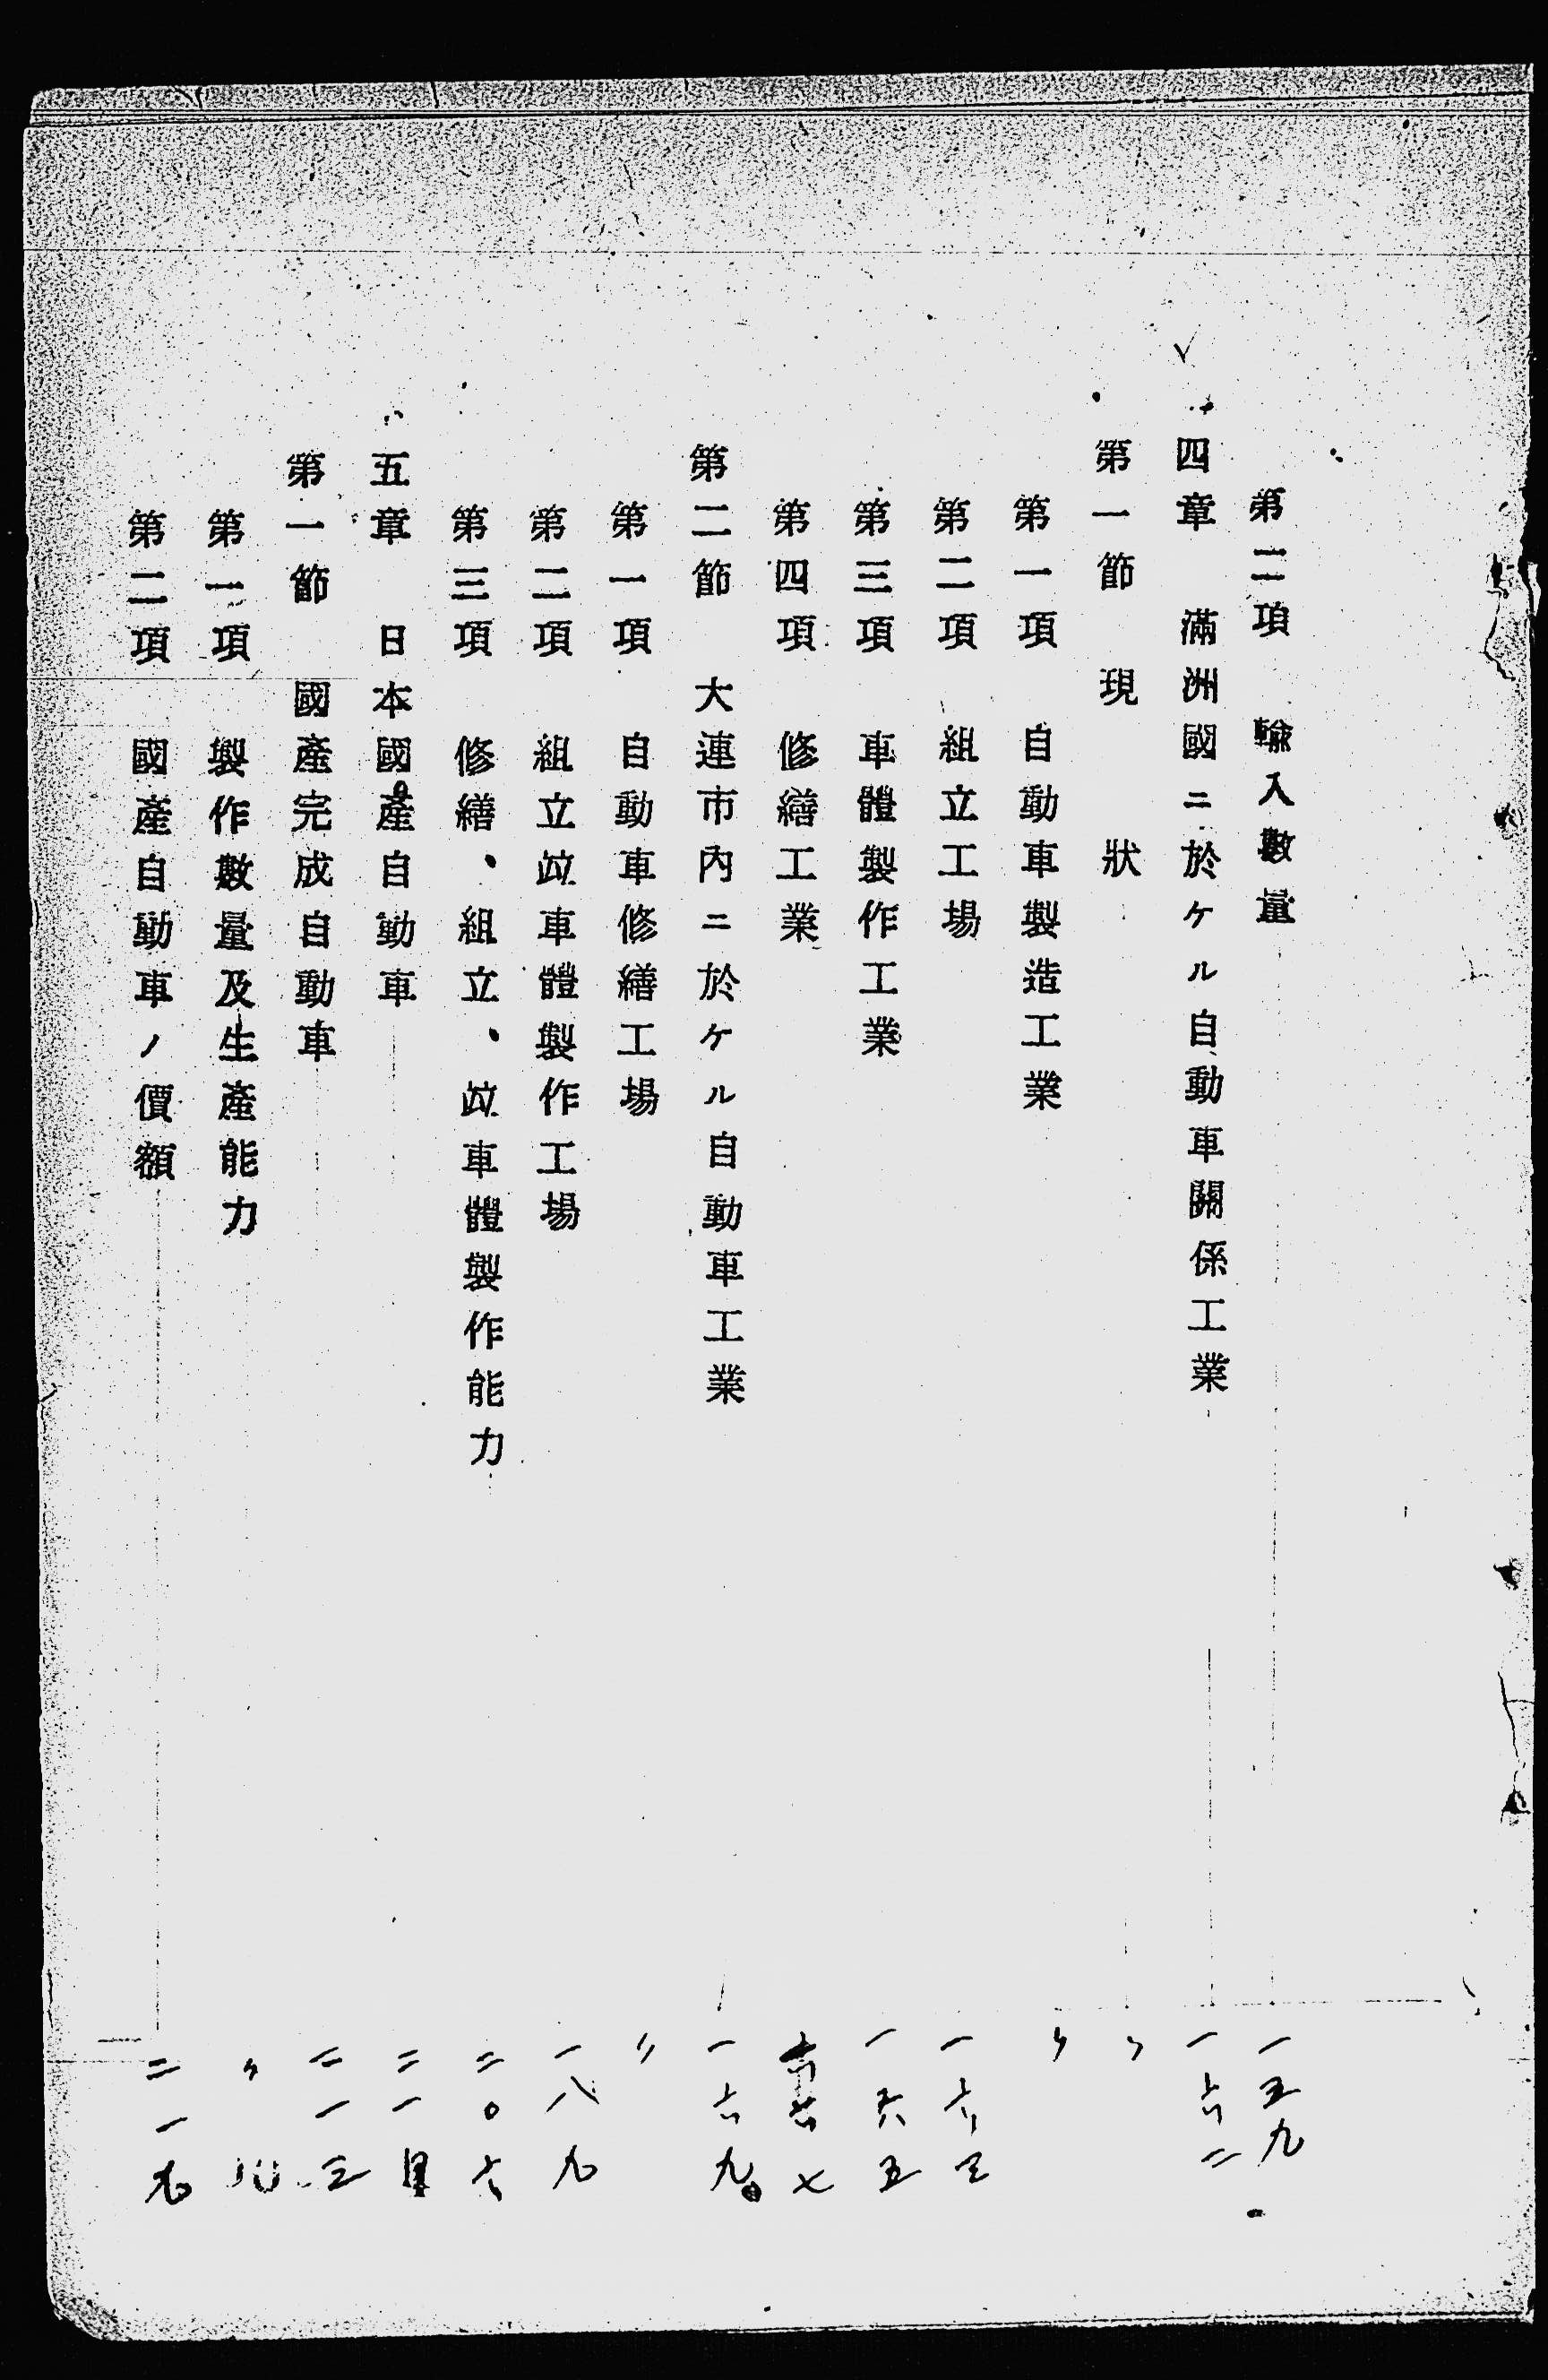 第二項　輸入數量　一五九
四章　滿洲國ニ於ケル自動車關係工業　一六二
第一節　現狀　〃
第一項　自動車製造工業　〃
第二項　組立工場　一六三
第三項　車體製作工業　一六五
第四項　修繕工業　一六七
第二節　大連市內ニ於ケル自動車工業　一六九
第一項　自動車修繕工場　〃
第二項　組立竝車體製作工場　一八九
第三項　修繕、組立、竝車體製作能力　二〇六
五章　日本國產自動車　二一
第一節　國產完成自動車　二一三
第一項　製作數量及生產能力　〃
第二項　國產自動車ノ價額　二一九